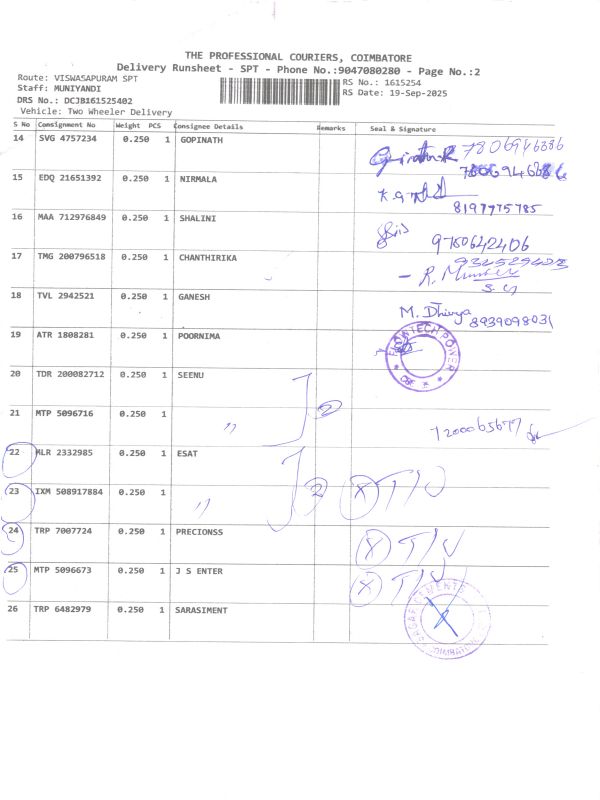 THE PROFESSIONAL COURIERS, COIMBATORE
Delivery Runsheet - SPT - Phone No.:9047080280 - Page No.:2
Route: VISWASAPURAM SPT
Staff: MUNIYANDI
DRS No.: DCJB161525402
Vehicle: Two Wheeler Delivery
RS No.: 1615254
RS Date: 19-Sep-2025
S No Consignment No Weight PCS Consignee Details Remarks Seal & Signature
14 SVG 4757234 0.250 1 GOPINATH 7806946886
15 EDQ 21651392 0.250 1 NIRMALA 8197775785
16 MAA 712976849 0.250 1 SHALINI 9780642406
17 TMG 200796518 0.250 1 CHANTHIRIKA
18 TVL 2942521 0.250 1 GANESH M. Dhivya 8939098031
19 ATR 1808281 0.250 1 POORNIMA FLOWTECH POWER CBE
20 TDR 200082712 0.250 1 SEENU
21 MTP 5096716 0.250 1 " 2 7200065677
22 KLR 2332985 0.250 1 ESAT
23 IXM 508917884 0.250 1 " 2 X
24 TRP 7007724 0.250 1 PRECIONSS X
25 MTP 5096673 0.250 1 J S ENTER X
26 TRP 6482979 0.250 1 SARASIMENT X